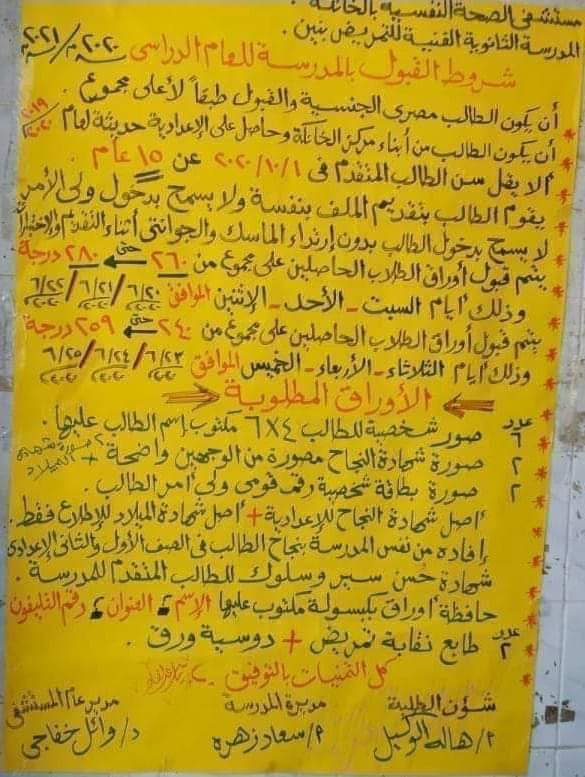 مستشفى الصحة النفسية بالخانكة .
المدرسة الثانوية الفنية للتمريض بنين .
شروط القبول بالمدرسة للعام الدراسى ٢٠٢٠م / ٢٠٢١م
أن يكون الطالب مصرى الجنسية والقبول طبقاً لأعلى مجموع .
* أن يكون الطالب من أبناء مركز الخانكة وحاصل على الإعدادية حديثة لعام ٢٠١٩ / ٢٠٢٠
* ألا يقل سن الطالب المتقدم فى ٢٠٢٠/١٠/١ عن ١٥ عام .
* يقوم الطالب بتقديم الملف بنفسة ولا يسمح بدخول ولى الأمر
* لا يسمح بدخول الطالب بدون إرتداء الماسك والجوانتى أثناء التقدم والإختبارات
* يتم قبول أوراق الطلاب الحاصلين على مجموع من ٢٦٠ حتى ٢٨٠ درجة
وذلك أيام السبت - الأحد - الإثنين الموافق ٦/٢٠ / ٦/٢١ / ٦/٢٢ ٢٠٢٠ ٢٠٢٠ ٢٠٢٠
* يتم قبول أوراق الطلاب الحاصلين على مجموع من ٢٤٠ حتى ٢٥٩ درجة
وذلك أيام الثلاثاء - الأربعاء - الخميس الموافق ٦/٢٣ / ٦/٢٤ / ٦/٢٥ ٢٠٢٠ ٢٠٢٠ ٢٠٢٠
الأوراق المطلوبة
* عدد ٦ صور شخصية للطالب ٤×٦ مكتوب إسم الطالب عليها .
* ٢ صورة شهادة النجاح مصورة من الوجهين واضحة + ٢ صورة شهادة الميلاد
* ٢ صورة بطاقة شخصية رقم قومى ولى أمر الطالب .
* أصل شهادة النجاح للإعدادية + أصل شهادة الميلاد للإطلاع فقط .
* إفادة من نفس المدرسة بنجاح الطالب فى الصف الأول والثانى الإعدادى
* شهادة حُسن سير وسلوك للطالب المتقدم للمدرسة .
* حافظة أوراق بكبسولة مكتوب عليها الإسم ؛ العنوان ؛ رقم التليفون
* عدد ٢ طابع نقابة تمريض + دوسية ورق .
كل التمنيات بالتوفيق .
شؤن الطلبة
أ/ هالة الوكيل
مديرة المدرسة
أ/ سعاد زهره
مدير عام المستشفى
د/ وائل خفاجى